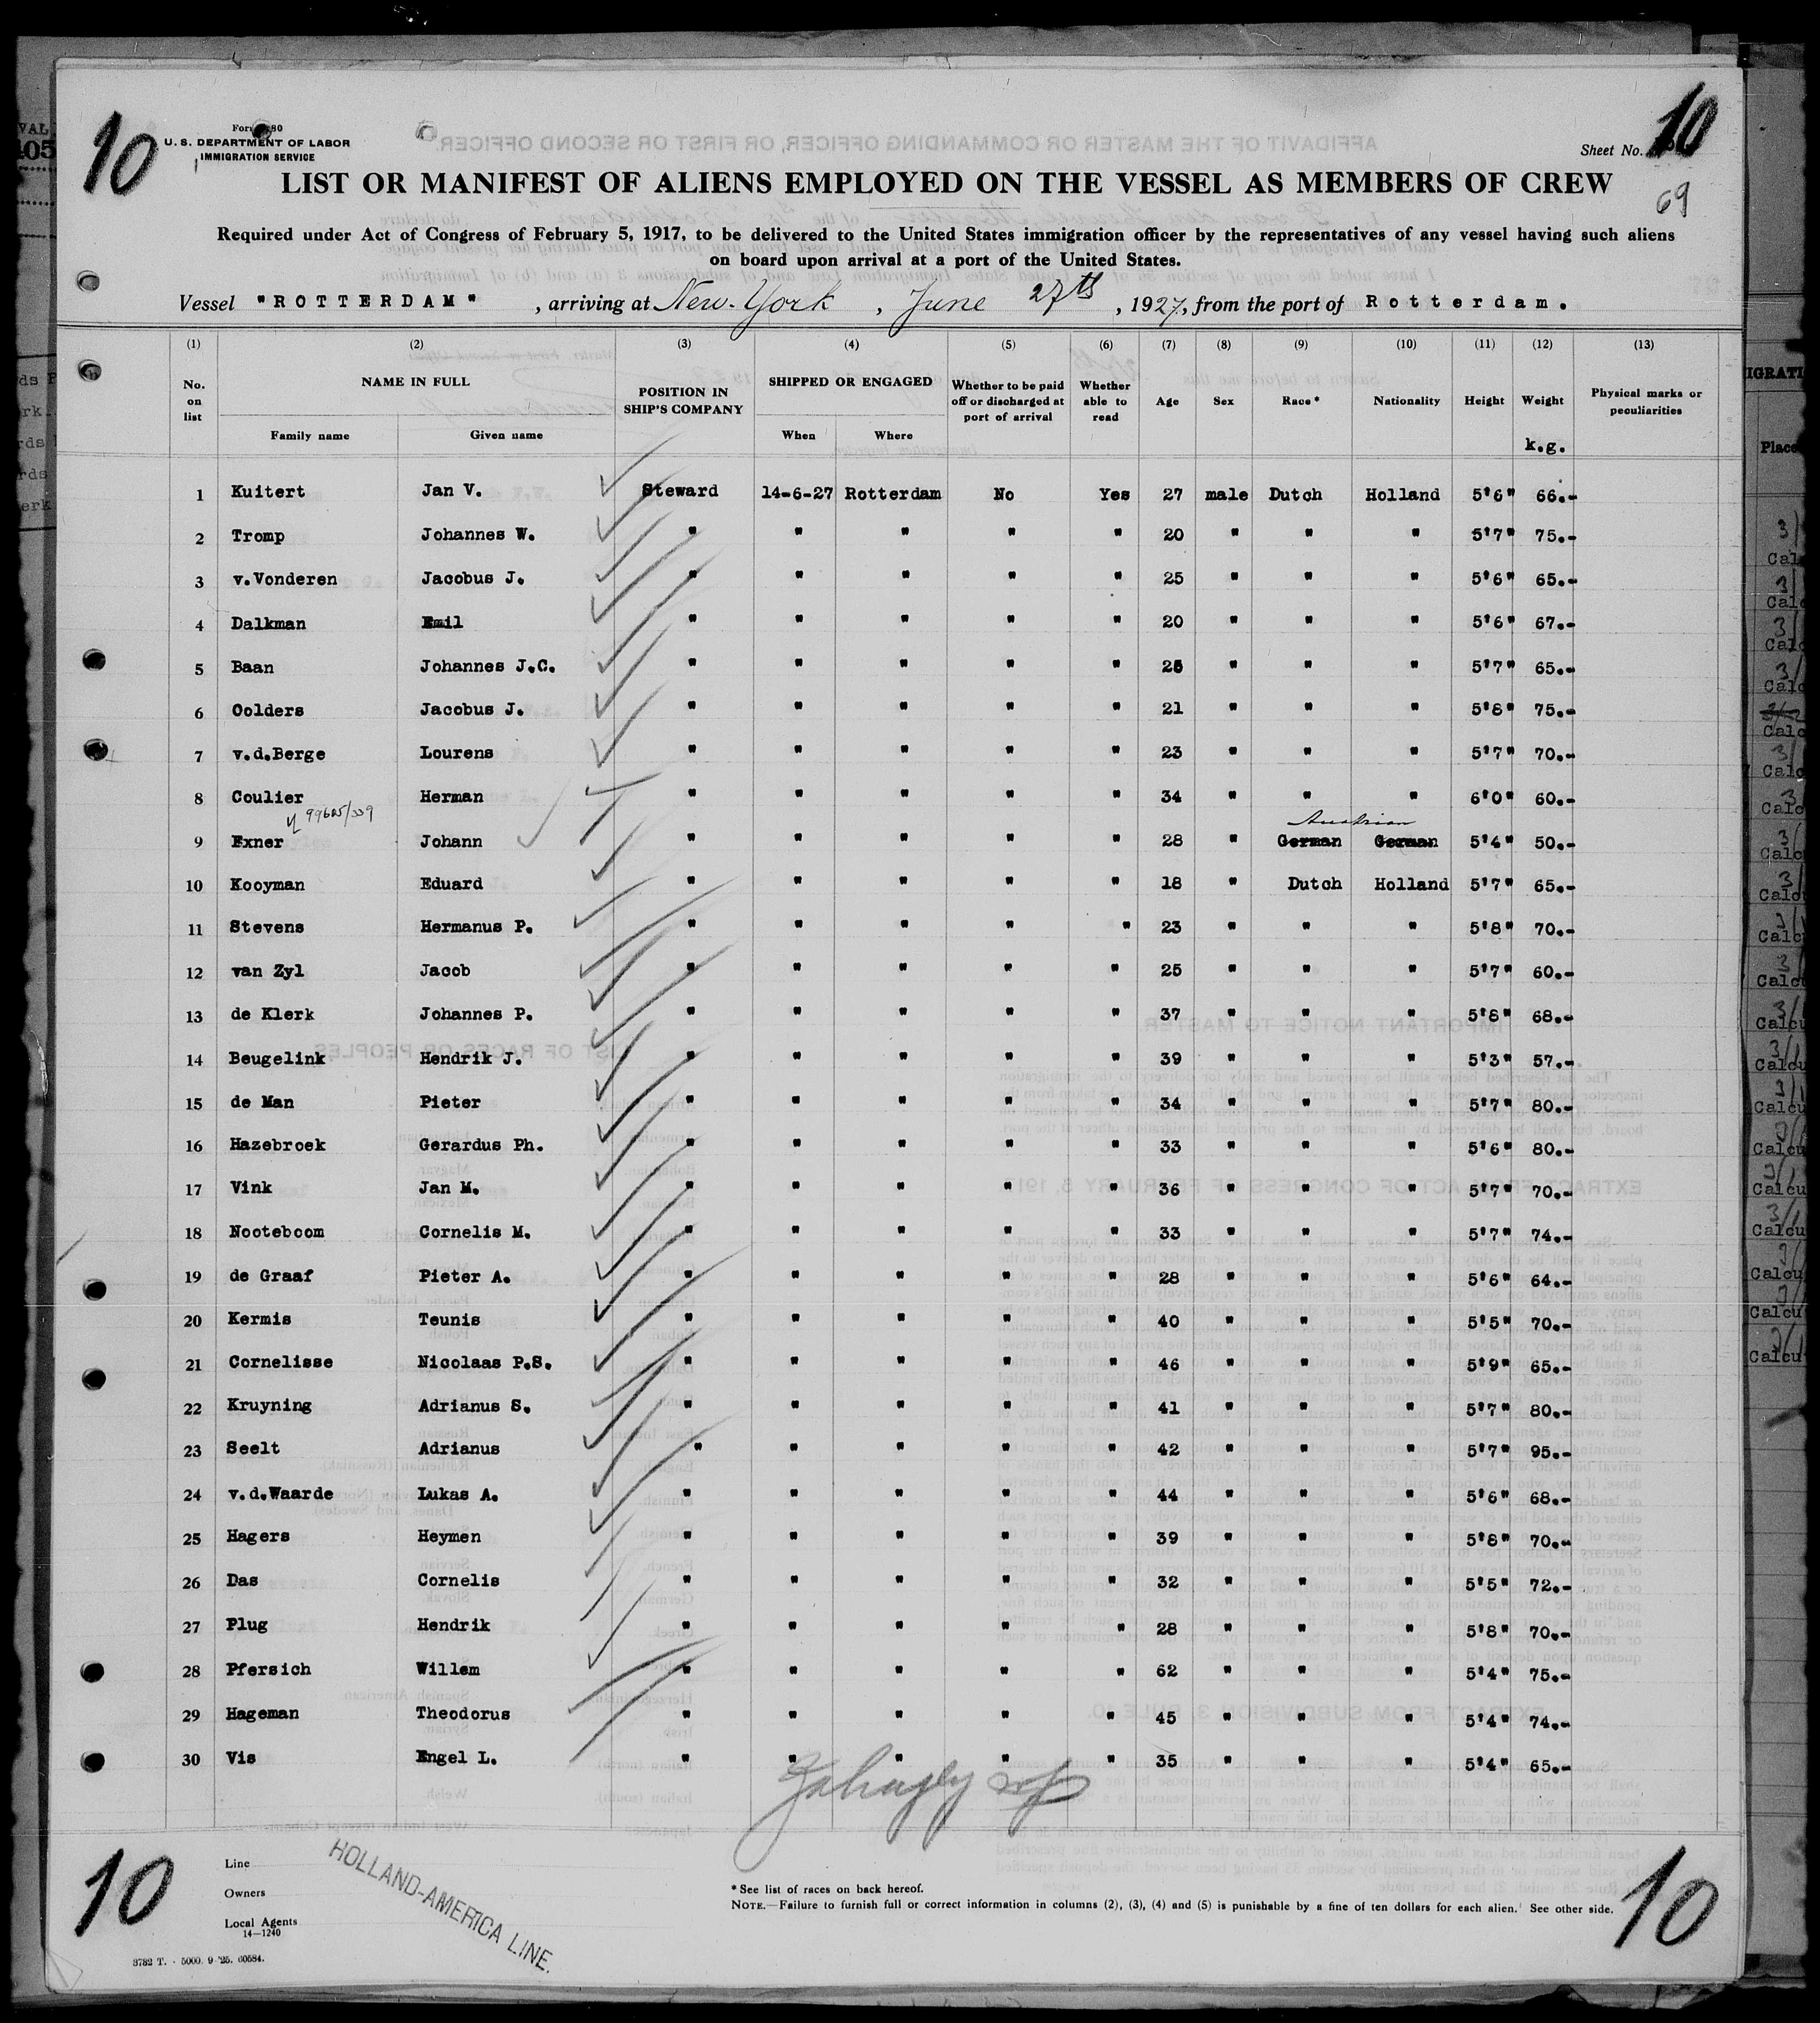 10
U. S. DEPARTMENT OF LABOR
IMMIGRATION SERVICE
Sheet No. 10
69
LIST OR MANIFEST OF ALIENS EMPLOYED ON THE VESSEL AS MEMBERS OF CREW
Required under Act of Congress of February 5, 1917, to be delivered to the United States immigration officer by the representatives of any vessel having such aliens
on board upon arrival at a port of the United States.
Vessel "ROTTERDAM" , arriving at New-York , June 27th , 1927, from the port of Rotterdam.
(1) (2) (3) (4) (5) (6) (7) (8) (9) (10) (11) (12) (13)
No. on list NAME IN FULL Family name Given name POSITION IN SHIP'S COMPANY SHIPPED OR ENGAGED When Where Whether to be paid off or discharged at port of arrival Whether able to read Age Sex Race* Nationality Height Weight k.g. Physical marks or peculiarities
1 Kuitert Jan V. Steward 14-6-27 Rotterdam No Yes 27 male Dutch Holland 5'6" 66.-
2 Tromp Johannes W. " " " " " 20 " " " 5'7" 75.-
3 v.Vonderen Jacobus J. " " " " " 25 " " " 5'6" 65.-
4 Dalkman Emil " " " " " 20 " " " 5'6" 67.-
5 Baan Johannes J.C. " " " " " 25 " " " 5'7" 65.-
6 Oolders Jacobus J. " " " " " 21 " " " 5'8" 75.-
7 v.d.Berge Lourens " " " " " 23 " " " 5'7" 70.-
8 Coulier Herman " " " " " 34 " " " 6'0" 60.-
Austrian
9 Exner Johann " " " " " 28 " German German 5'4" 50.-
10 Kooyman Eduard " " " " " 18 " Dutch Holland 5'7" 65.-
11 Stevens Hermanus P. " " " " " 23 " " " 5'8" 70.-
12 van Zyl Jacob " " " " " 25 " " " 5'7" 60.-
13 de Klerk Johannes P. " " " " " 37 " " " 5'8" 68.-
14 Beugelink Hendrik J. " " " " " 39 " " " 5'3" 57.-
15 de Man Pieter " " " " " 34 " " " 5'7" 80.-
16 Hazebroek Gerardus Ph. " " " " " 33 " " " 5'6" 80.-
17 Vink Jan M. " " " " " 36 " " " 5'7" 70.-
18 Nooteboom Cornelis M. " " " " " 33 " " " 5'7" 74.-
19 de Graaf Pieter A. " " " " " 28 " " " 5'6" 64.-
20 Kermis Teunis " " " " " 40 " " " 5'5" 70.-
21 Cornelisse Nicolaas P.S. " " " " " 46 " " " 5'9" 65.-
22 Kruyning Adrianus S. " " " " " 41 " " " 5'7" 80.-
23 Seelt Adrianus " " " " " 42 " " " 5'7" 95.-
24 v.d.Waarde Lukas A. " " " " " 44 " " " 5'6" 68.-
25 Hagers Heymen " " " " " 39 " " " 5'8" 70.-
26 Das Cornelis " " " " " 32 " " " 5'5" 72.-
27 Plug Hendrik " " " " " 28 " " " 5'8" 70.-
28 Pfersich Willem " " " " " 62 " " " 5'4" 75.-
29 Hageman Theodorus " " " " " 45 " " " 5'4" 74.-
30 Vis Engel L. " " " " " 35 " " " 5'4" 65.-
10
Line
Owners
Local Agents
14—1240
HOLLAND-AMERICA LINE.
* See list of races on back hereof.
NOTE.—Failure to furnish full or correct information in columns (2), (3), (4) and (5) is punishable by a fine of ten dollars for each alien. See other side.
10